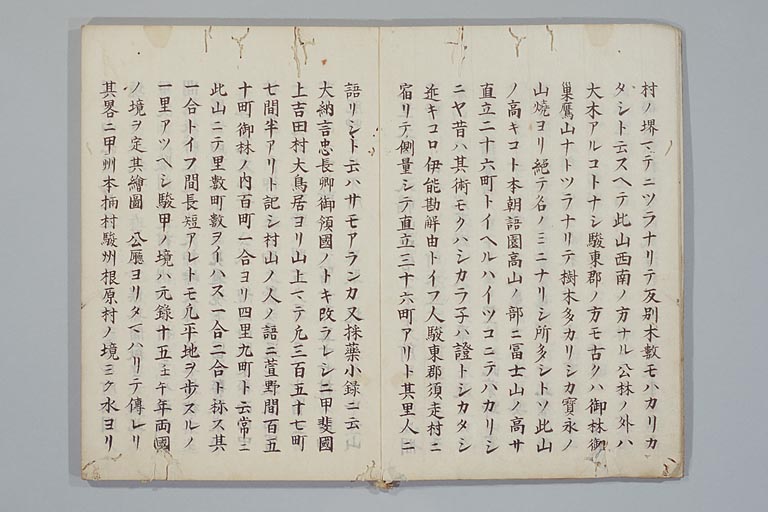 村ノ堺マテニツラナリテ反別木數モハカリカ
タシト云スヘテ此山西南ノ方ナル公林ノ外ハ
大木アルコトナシ駿東郡ノ方モ古クハ御林御
巣鷹山ナトツラナリテ樹木多カリシカ寳永ノ
山燒ヨリ絶テ名ノミニナリシ所多シトソ此山
ノ高キコト本朝語園高山ノ部ニ冨士山ノ高サ
直立二十六町トイヘルハイツコニテハカリシ
ニヤ昔ハ其術モクハシカラ子ハ證トシカタシ
近キコロ伊能勘解由トイフ人駿東郡須走村ニ
宿リテ側量シテ直立三十六町アリト其里人ニ
語リシト云ハサモアランカ又採藥小録ニ云山
大納言忠長卿御領國ノトキ改ラレシニ甲斐國
上吉田村大鳥居ヨリ山上マテ凢三百五十七町
七間半アリト記シ村山ノ人ノ語ニ萱野間百五
十町御林ノ内百町一合ヨリ四里九町ト云常ニ
此山ニテ里數町數ヲイハス一合二合ト称ス其
一合トイフ間長短アレトモ凢平地ヲ歩スルノ
一里アツヘシ駿甲ノ境ハ元録十五壬午年両國
ノ境ヲ定其繪圖 公廳ヨリタマハリテ傳レリ
其畧ニ甲州本栖村駿州根原村ノ境ミク水ヨリ